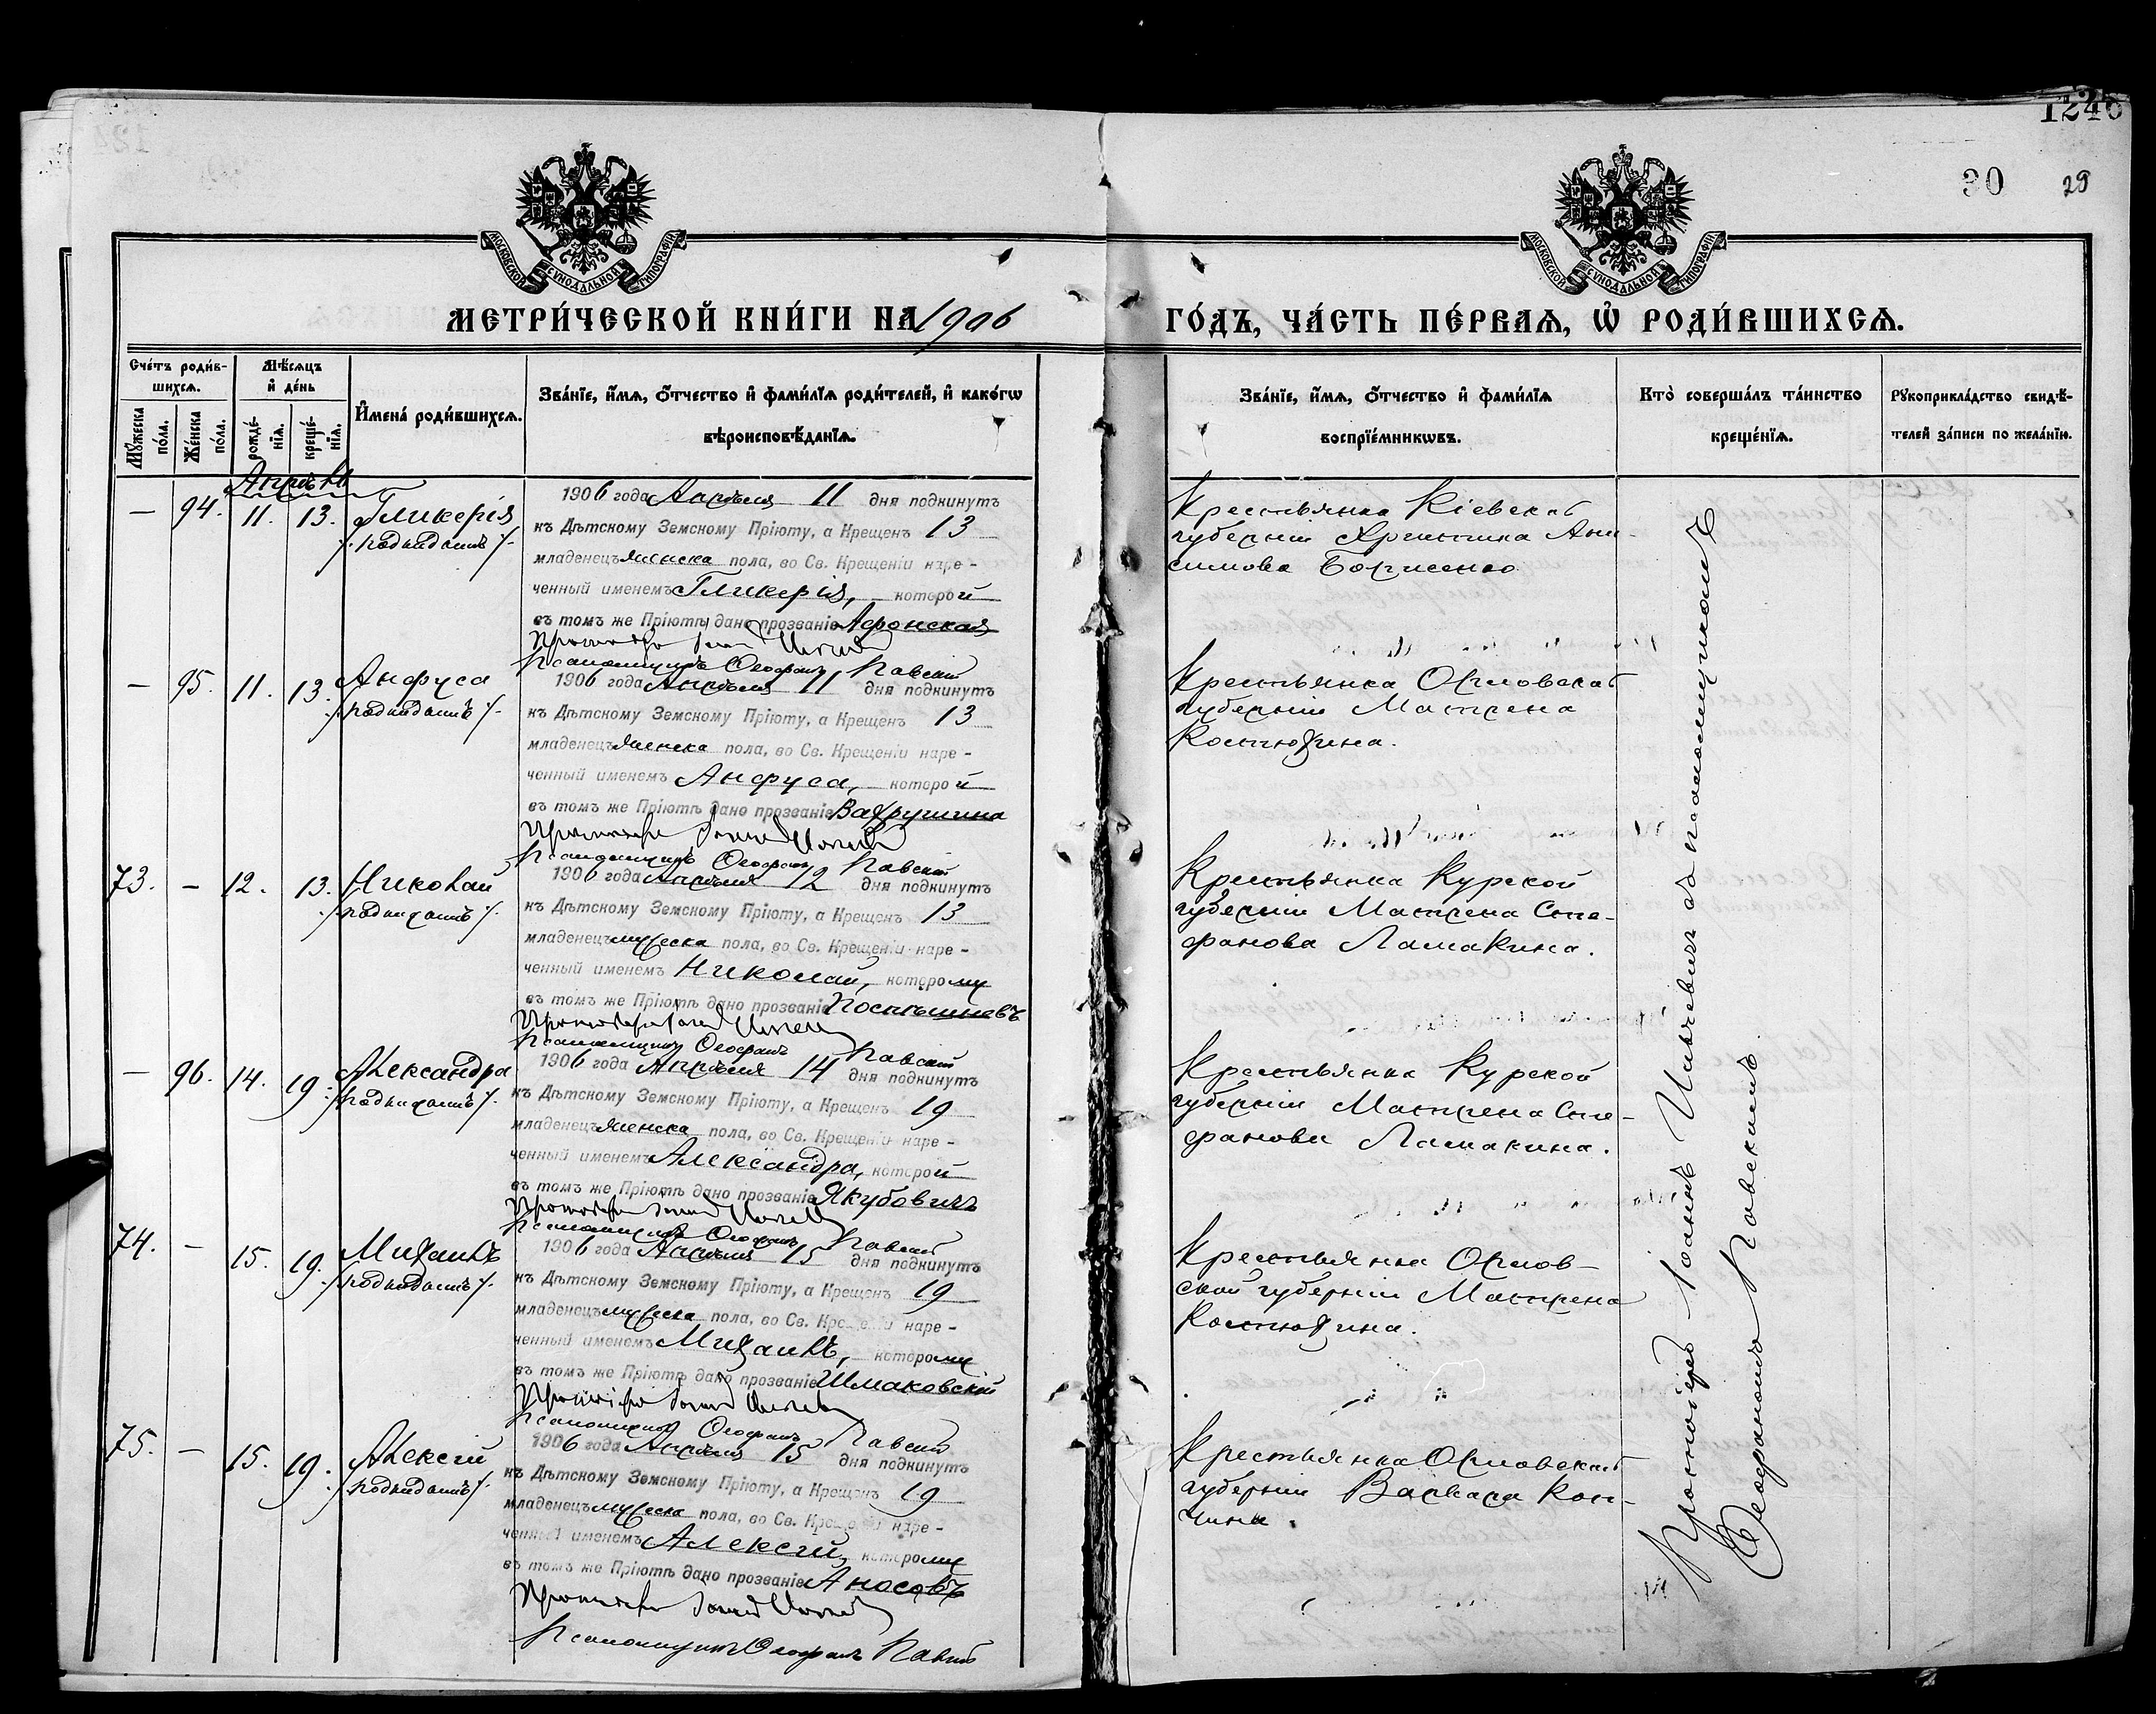 1246
30 29
МОСКОВСКОЙ СѴНОДАЛЬНОЙ ТИПОГРАФІИ
МОСКОВСКОЙ СѴНОДАЛЬНОЙ ТИПОГРАФІИ
МЕТРИ́ЧЕСКОЙ КНИ́ГИ НА 1906
ГО́ДЪ, ЧА́СТЬ ПЕ́РВАѦ, Ѽ РОДИ́ВШИХСѦ.
Сче́тъ роди́в-
шихсѧ.
Мꙋжеска по́ла.
Же́нска по́ла.
Мѣ́сѧцъ
и҆ де́нь
рожде́-
нїѧ.
креще́-
нїѧ.
И҆мена̀ роди́вшихсѧ.
Зва́нїе, и҆́мѧ, ѻ҆́тчество и҆ фами́лїѧ роди́телей, и҆ како́гѡ
вѣроисповѣ́данїѧ.
Зва́нїе, и҆́мѧ, ѻ҆́тчество и҆ фами́лїѧ
воспрїе́мникѡвъ.
Кто̀ соверша́лъ та́инство
креще́нїѧ.
Рꙋкоприкла́дство свидѣ́-
телей за́писи по жела́нїю.
Апрѣль
— 94. 11. 13. Гликерія
/. подкидышъ /.
1906 года Апрѣля 11 дня подкинутъ
къ Дѣтскому Земскому Пріюту, а Крещенъ 13
младенецъ женска пола, во Св. Крещеніи наре-
ченный именемъ Гликерія, которой
въ томъ же Пріютѣ дано прозваніе Афонская
Протоіерей Іоаннъ
Псаломщикъ Ѳеофанъ Павскій
Крестьянка Кіевской
губерніи Христина Ани-
симова Борисенко
— 95. 11. 13. Анфуса
/. подкидышъ /.
1906 года Апрѣля 11 дня подкинутъ
къ Дѣтскому Земскому Пріюту, а Крещенъ 13
младенецъ женска пола, во Св. Крещеніи наре-
ченный именемъ Анфуса, которой
въ томъ же Пріютѣ дано прозваніе Вахрушина
Протоіерей Іоаннъ
Псаломщикъ Ѳеофанъ Павскій
Крестьянка Орловской
губерніи Матрена
Костюхина.
73. — 12. 13. Николай
/. подкидышъ /.
1906 года Апрѣля 12 дня подкинутъ
къ Дѣтскому Земскому Пріюту, а Крещенъ 13
младенецъ мужеска пола, во Св. Крещеніи наре-
ченный именемъ Николай, которому
въ томъ же Пріютѣ дано прозваніе Поспѣшневъ
Протоіерей Іоаннъ
Псаломщикъ Ѳеофанъ Павскій
Крестьянка Курской
губерніи Матрена Сте-
фанова Ламакина.
— 96. 14. 19. Александра
/. подкидышъ /.
1906 года Апрѣля 14 дня подкинутъ
къ Дѣтскому Земскому Пріюту, а Крещенъ 19
младенецъ женска пола, во Св. Крещеніи наре-
ченный именемъ Александра, которой
въ томъ же Пріютѣ дано прозваніе Якубовичъ
Протоіерей Іоаннъ
Псаломщикъ Ѳеофанъ Павскій
Крестьянка Курской
губерніи Матрена Сте-
фанова Ламакина.
74. — 15. 19. Михаилъ
/. подкидышъ /.
1906 года Апрѣля 15 дня подкинутъ
къ Дѣтскому Земскому Пріюту, а Крещенъ 19
младенецъ мужеска пола, во Св. Крещеніи наре-
ченный именемъ Михаилъ, которому
въ томъ же Пріютѣ дано прозваніе Шмаковскій
Протоіерей Іоаннъ
Псаломщикъ Ѳеофанъ Павскій
Крестьянка Орлов-
ской губерніи Матрена
Костюхина.
75. — 15. 19. Алексій
/. подкидышъ /.
1906 года Апрѣля 15 дня подкинутъ
къ Дѣтскому Земскому Пріюту, а Крещенъ 19
младенецъ мужеска пола, во Св. Крещеніи наре-
ченный именемъ Алексій, которому
въ томъ же Пріютѣ дано прозваніе Аносовъ
Протоіерей Іоаннъ
Псаломщикъ Ѳеофанъ Павскій
Крестьянка Орловской
губерніи Варвара Кон-
чина.
Протоіерей Іоаннъ съ псаломщикомъ
Ѳеофаномъ Павскимъ.